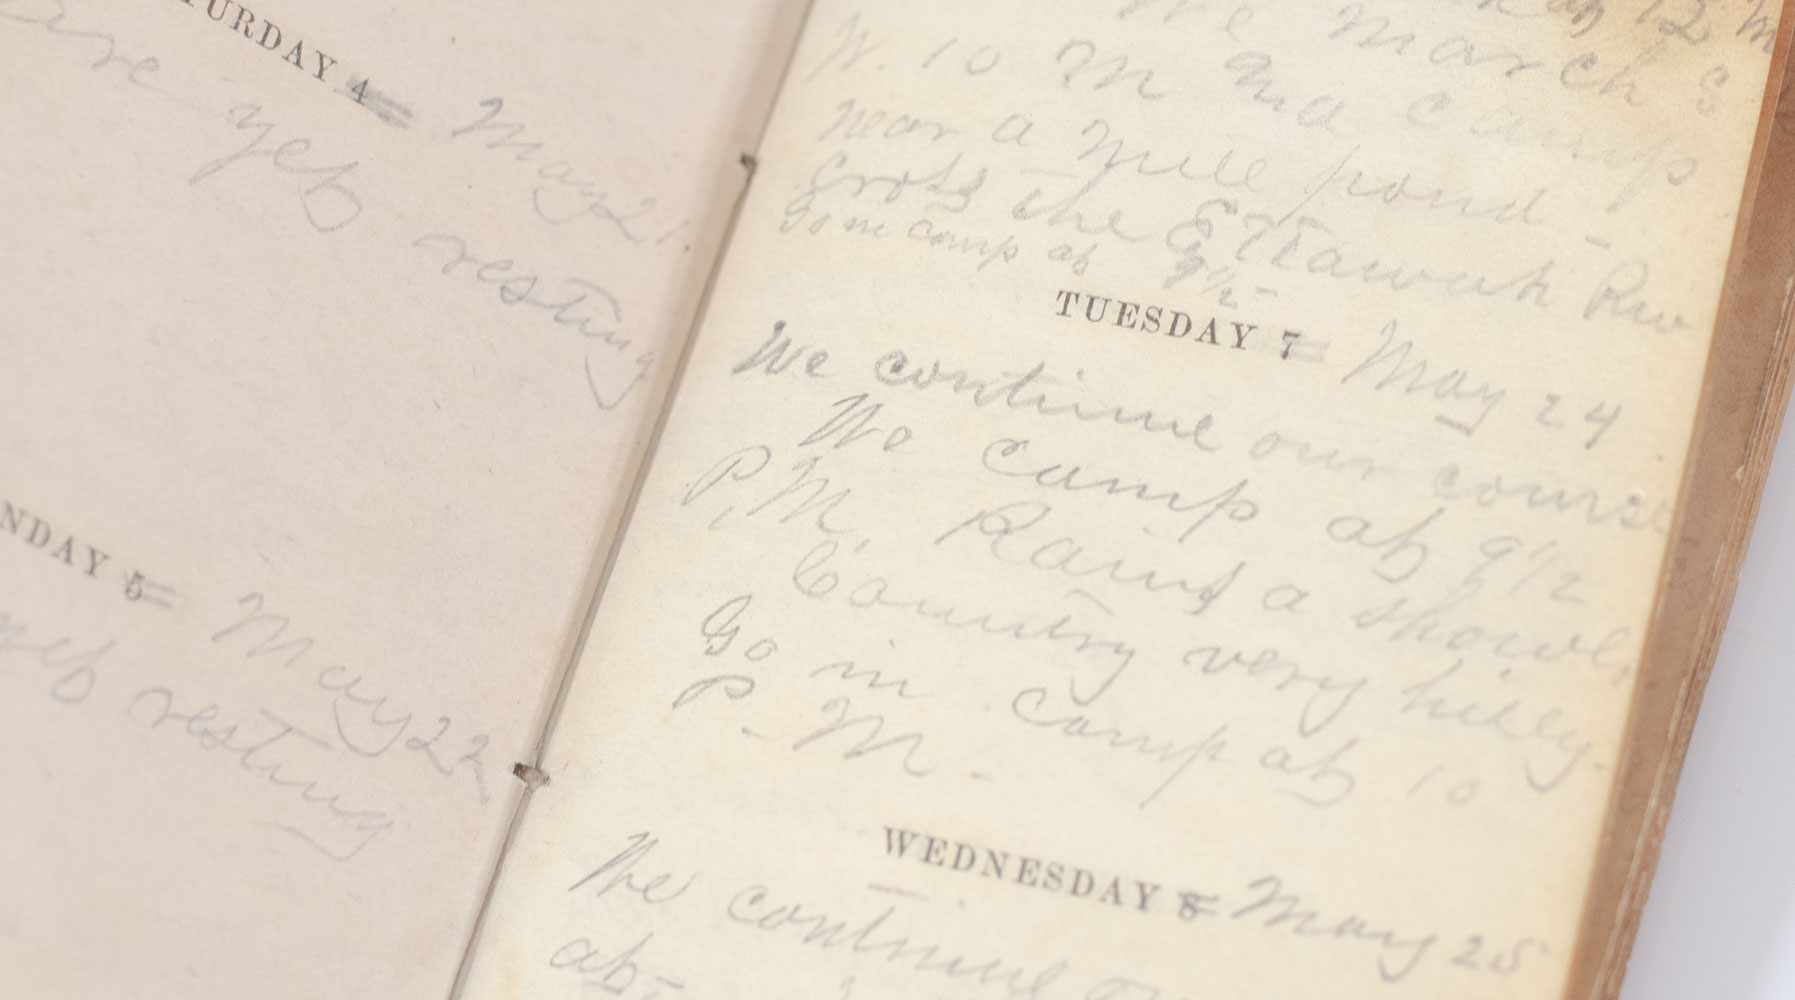 TURDAY 4 May 21.
are yet resting
NDAY 5 May 22
yet resting
12 M
We march S
W. 10 M Ma camp
near a Mill pond -
Crots the Ettawah Riv
Go in camp at 9 1/2 -
TUESDAY 7 May 24
We continue our course
We camp at 9 1/2
P.M. Rains a shower
Country very hilly.
Go in camp at 10
P. M. -
WEDNESDAY 8 May 25
We continue
at-